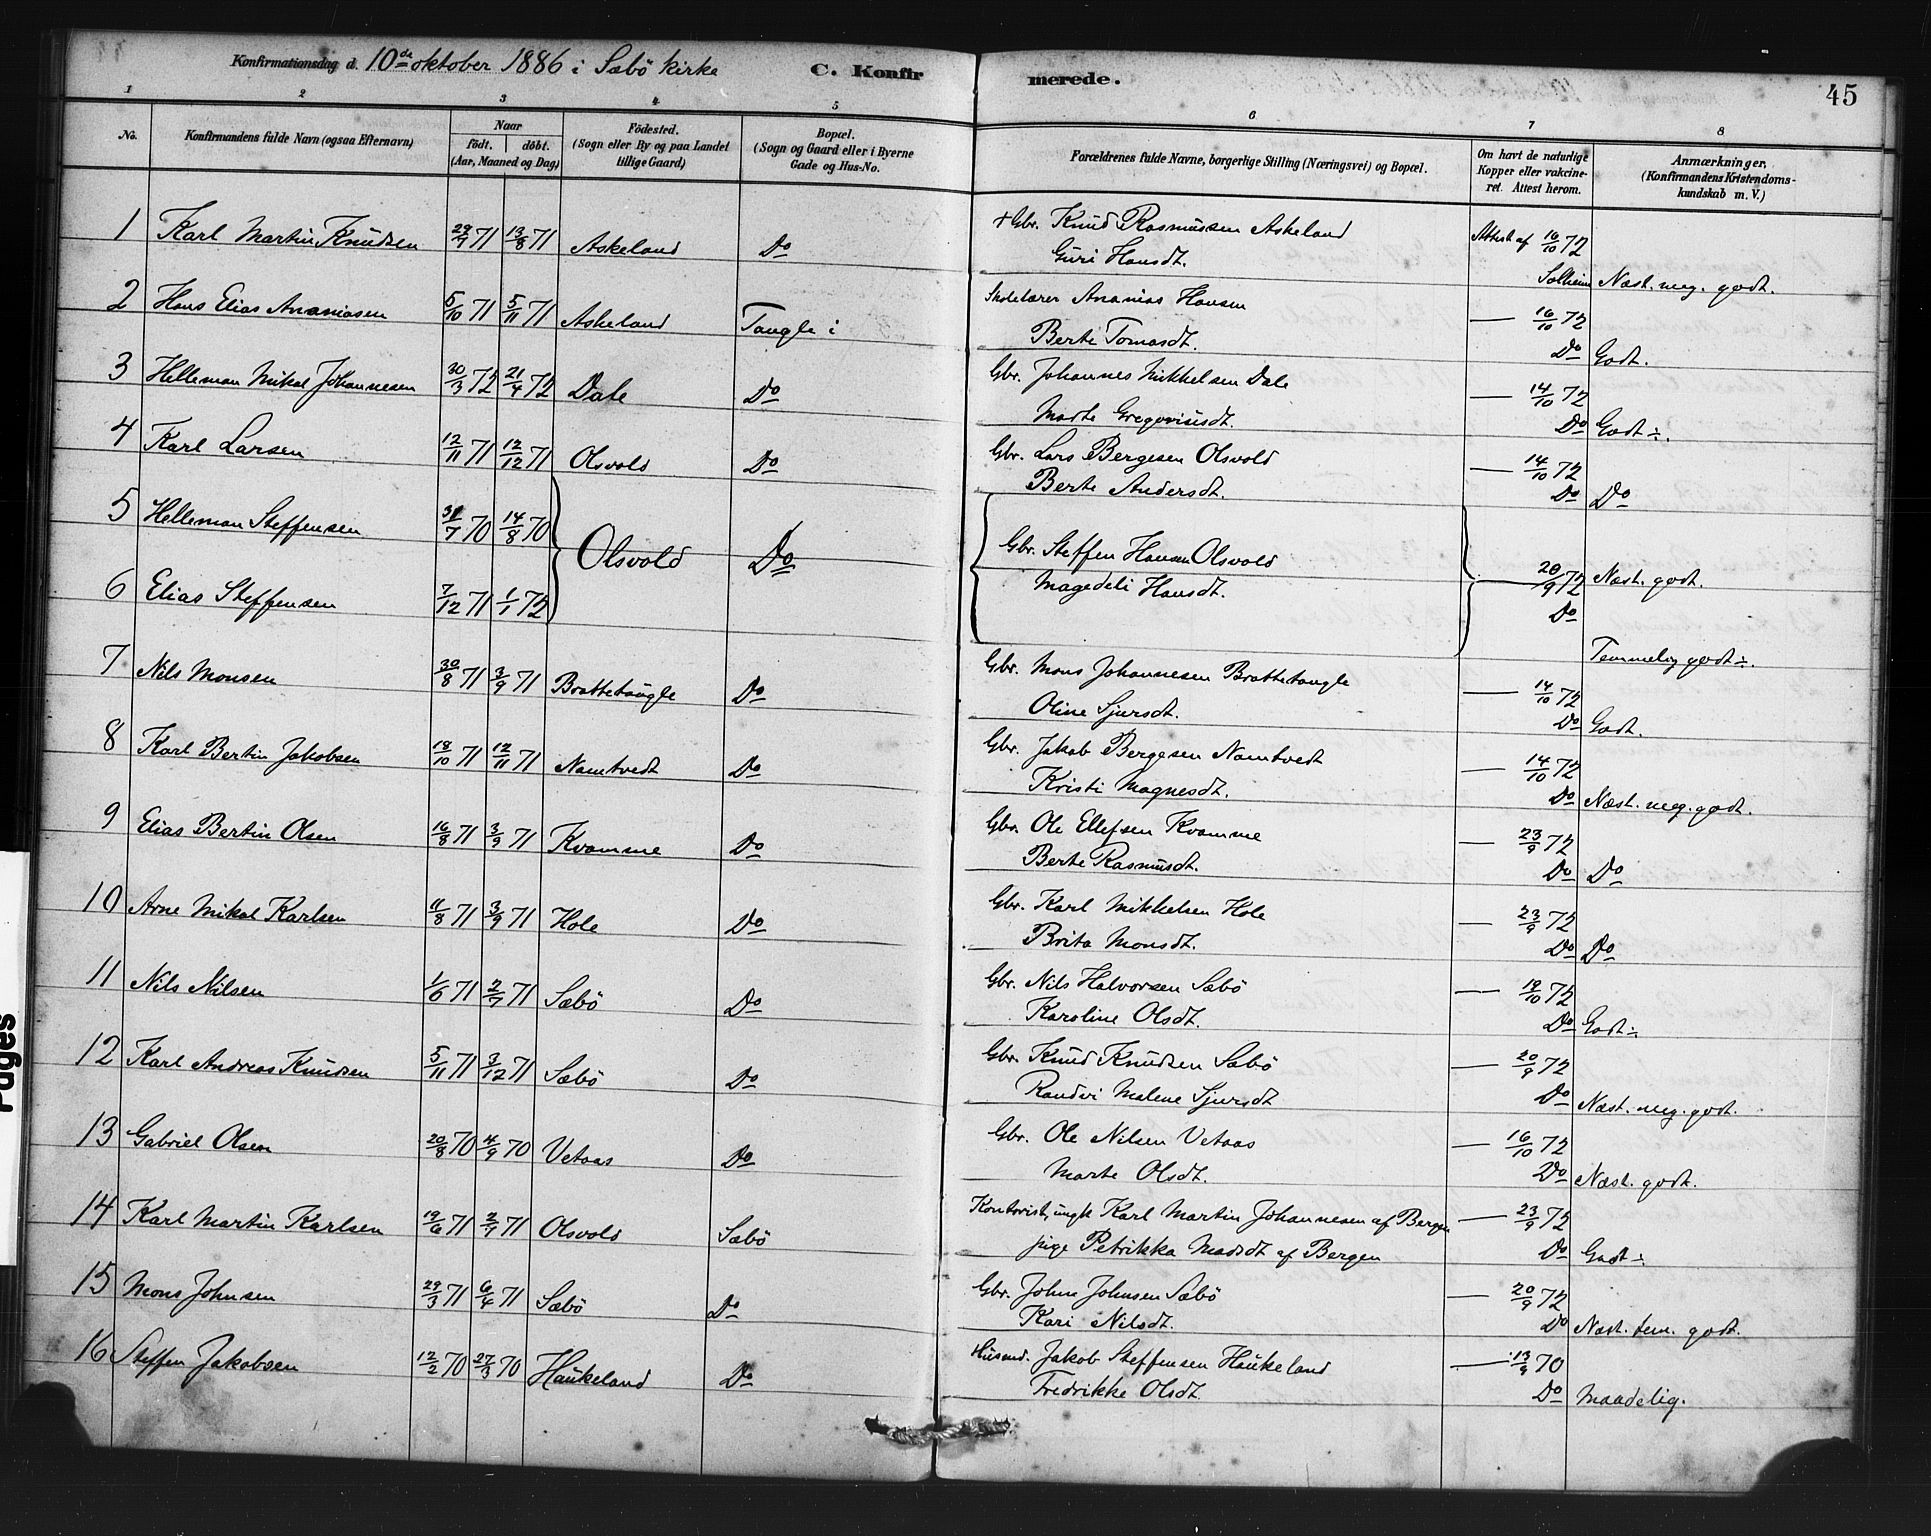 Konfirmationsdag d. 10de oktober 1886 i Sæbö kirke C. Konfirmerede. 45
1 2 3 4 5 6 7 8
No. Konfirmandens fulde Navn (ogsaa Efternavn) Naar födt. döbt. (Aar, Maaned og Dag) Födested. (Sogn eller By og paa Landet tillige Gaard) Bopæl. (Sogn og Gaard eller i Byerne Gade og Hus-No. Forældrenes fulde Navne, borgerlige Stilling (Næringsvei) og Bopæl. Om havt de naturlige Kopper eller vakcineret. Attest herom. Anmærkninger. (Konfirmandens Kristendomskundskab m. V.)
1 Karl Martin Knudsen 29/7 71 13/8 71 Askeland Do + Gbr. Knud Rasmussen Askeland Attest af 16/10 72
Guri Hansdt. Solheim Næst. meg. godt.
2 Hans Elias Ananiasen 5/10 71 5/11 71 Askeland Tangle i Skolelærer Ananias Hansen — 16/10 72
Berte Tomasdt. Do Godt.
3 Helleman Mikal Johannesen 30/3 72 21/4 72 Dale Do Gbr. Johannes Mikkelsen Dale — 14/10 72
Marte Gregoriusdt. Do Godt÷.
4 Karl Larsen 12/11 71 12/12 71 Olsvold Do Gbr. Lars Bergesen Olsvold — 14/10 72
Berte Andersdt. Do Do
5 Helleman Steffensen 31/7 70 14/8 70 Olsvold Do Gbr. Steffen Hansen Olsvold — 20/9 72 Næst. godt.
6 Elias Steffensen 7/12 71 1/1 72 Magedeli Hansdt. Do
Temmelig godt÷.
7 Nils Monsen 30/8 71 3/9 71 Brattetangle Do Gbr. Mons Johannesen Brattetangle — 14/10 72
Oline Sjursdt. Do Godt.
8 Karl Bertin Jakobsen 18/10 71 12/11 71 Namtvedt Do Gbr. Jakob Bergesen Namtvedt — 14/10 72
Kristi Magnesdt. Do Næst. meg. godt.
9 Elias Bertin Olsen 16/8 71 3/9 71 Kvamme Do Gbr. Ole Ellefsen Kvamme — 23/9 72
Berte Rasmusdt. Do Do
10 Arne Mikal Karlsen 11/8 71 3/9 71 Hole Do Gbr. Karl Mikkelsen Hole — 23/9 72
Brita Monsdt. Do Do
11 Nils Nilsen 1/6 71 2/7 71 Sæbö Do Gbr. Nils Halvorsen Sæbö — 19/10 72
Karoline Olsdt. Do Godt÷
12 Karl Andreas Knudsen 5/11 71 3/12 71 Sæbö Do Gbr. Knud Knudsen Sæbö — 20/9 72
Randvi Malene Sjursdt Do Næst. meg. godt.
13 Gabriel Olsen 20/8 70 4/9 70 Vetaas Do Gbr. Ole Nilsen Vetaas — 16/10 72
Marte Olsdt. Do Næst. godt.
14 Karl Martin Karlsen 19/6 71 2/7 71 Olsvold Sæbö Kontorist, ungk Karl Martin Johannesen af Bergen — 23/9 72
pige Petrikka Madsdt af Bergen Do Godt÷
15 Mons Johnsen 29/3 71 6/4 71 Sæbö Do Gbr. John Johnsen Sæbö — 20/9 72
Kari Nilsdt. Do Næst. tem. godt.
16 Steffen Jakobsen 12/2 70 27/3 70 Haukeland Do Husmd. Jakob Steffensen Haukeland — 13/9 70
Fredrikke Olsdt. Do Maadelig.
Pages